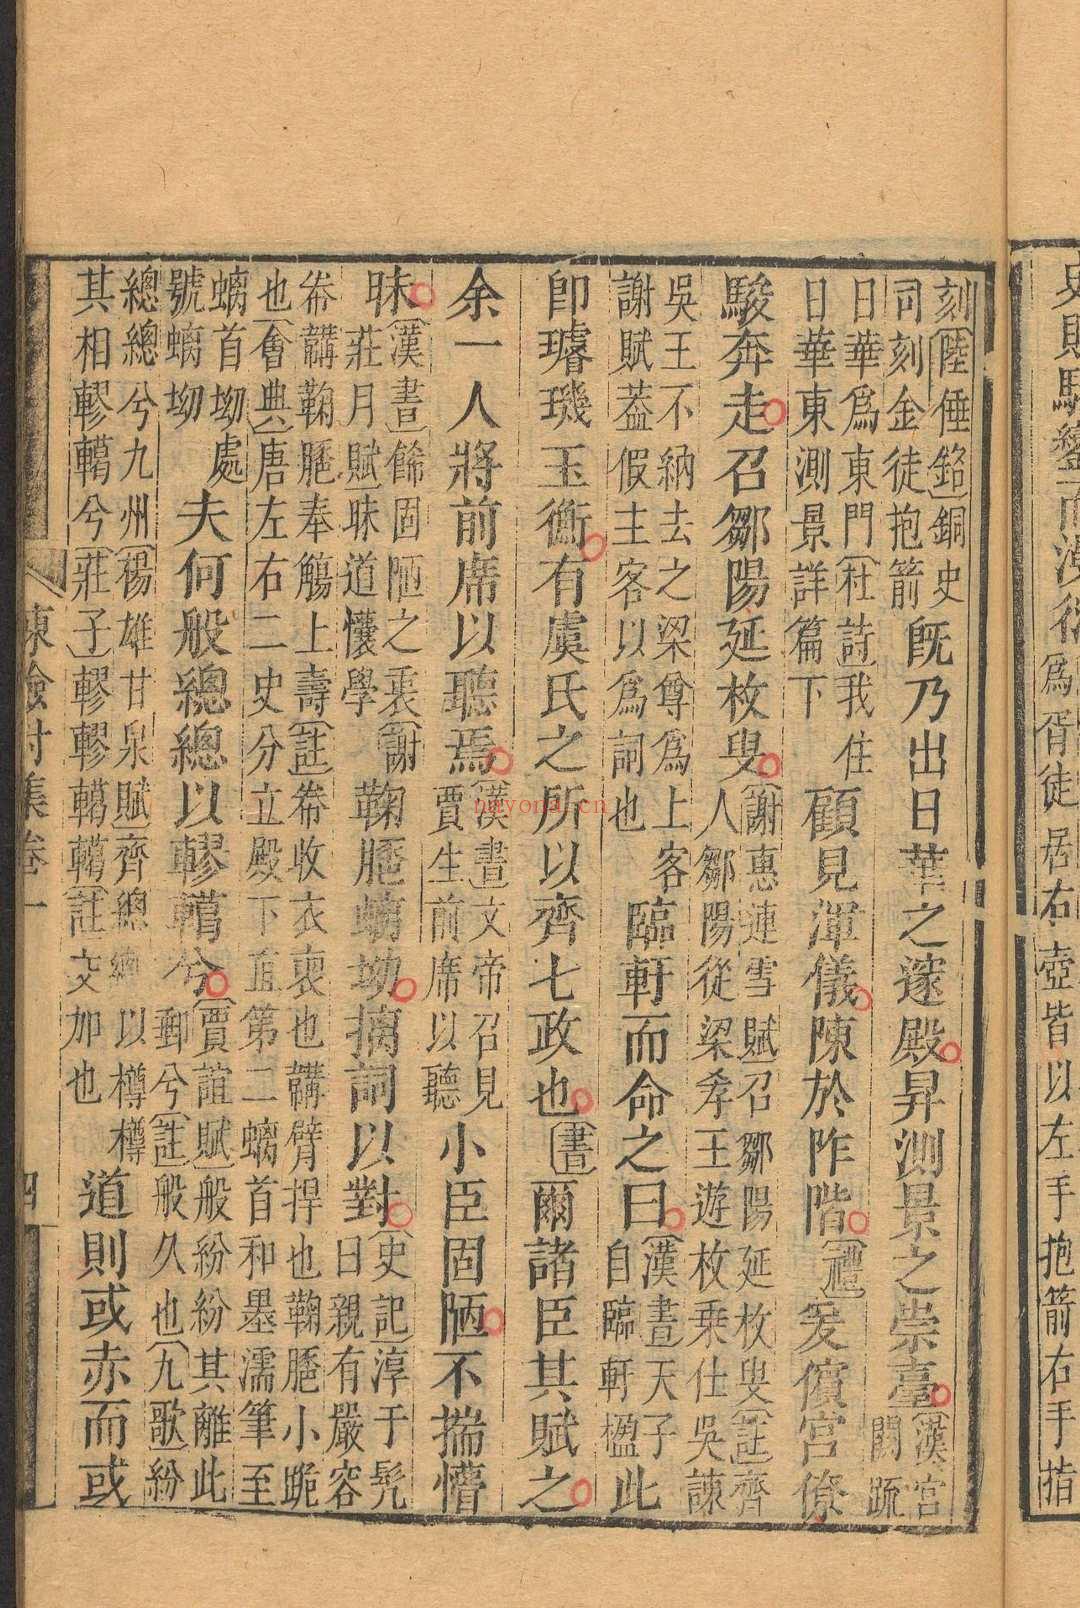 史賦駿鑾而漫衍爲胥徒居右壺皆以左手抱箭右手指
刻〔陸倕銘〕銅史司刻金徒抱箭旣乃出日華之邃殿昇測景之崇臺〔漢宮闕疏
日華爲東門〔杜詩〕我住日華東測景詳篇下顧見渾儀陳於阼階〔禮〕爰儐宮僚
駿奔走召鄒陽延枚叟〔謝惠連雪賦〕召鄒陽延枚叟〔註〕齊人鄒陽從梁孝王遊枚乗仕吳諫
吳王不納去之梁尊爲上客謝賦葢假主客以爲詞也臨軒而命之曰〔漢書〕天子自臨軒檻此
卽璿璣玉衡有虞氏之所以齊七政也〔書〕爾諸臣其賦之
余一人將前席以聽焉〔漢書〕文帝召見賈生前席以聽小臣固陋不揣懵
昧〔漢書〕餙固陋之衷〔謝莊月賦〕昧道懵學鞠䠆螭坳摛詞以對〔史記〕淳于髠曰親有嚴容
帣鞲鞠䠆奉觴上壽〔註〕帣收衣褏也鞲臂捍也鞠䠆小跪也〔會典〕唐左右二史分立殿下直第二螭首和墨濡筆至
螭首坳處號螭坳夫何般總總以轇轕兮〔賈誼賦〕般紛紛其離此郵兮〔註〕般久也〔九歌〕紛
總總兮九州〔楊雄甘泉賦〕齊總總以樽樽其相轇轕兮〔莊子〕轇轇轕轕〔註〕交加也道則或赤而或
陳檢討集卷一　四